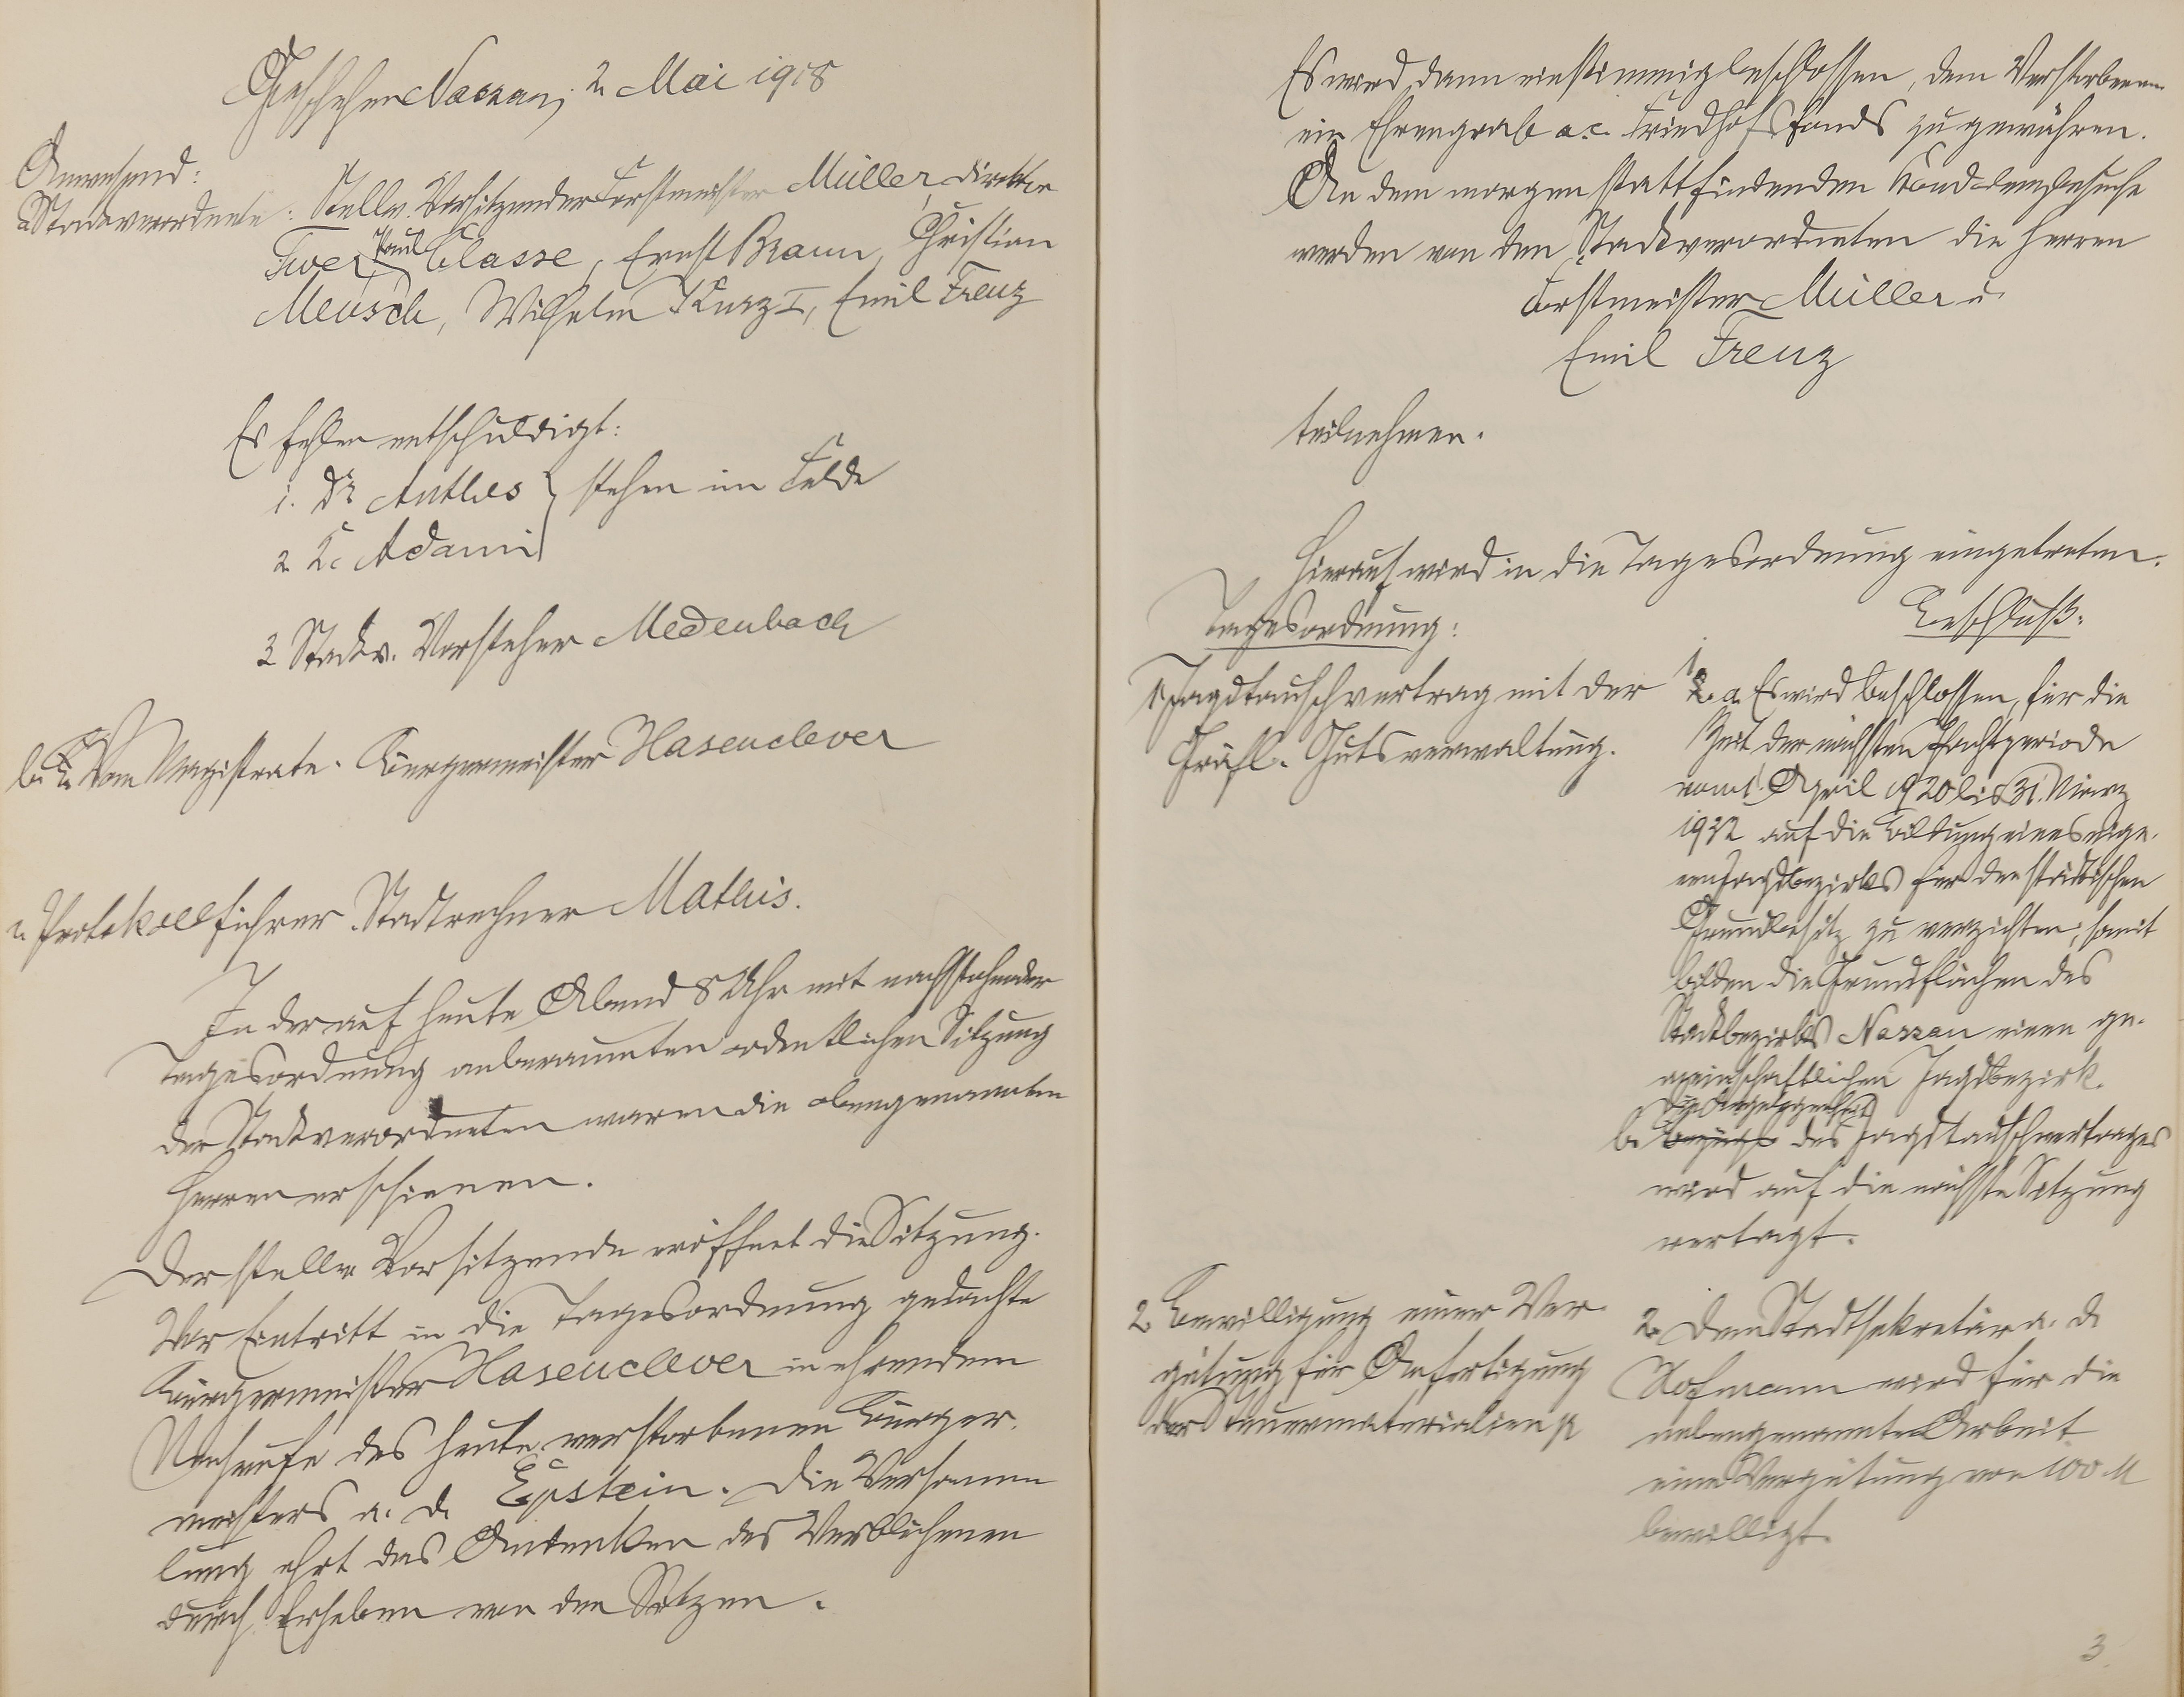 Geschehen Nassau, 2 Mai 1918
Anwesend:
a Stadtverordnete: Stellv. Vorsitzender Forstmeister Müller, Direktor
Twer, Paul Classe, Ernst Braun, Christian
Meusch, Wilhelm Kurz I, Emil Freuz
Es fehlen entschuldigt:
1. Dr Anthes } stehen im Felde
2. K. Adami
3 Stadtv. Vorsteher Medenbach
b. Vom Magistrate. Bürgermeister Hasenclever
c. Protokollführer Stadtrechner Mathis.
In der auf heute Abend 8 Uhr mit nachstehender
Tagesordnung anberaumten ordentlichen Sitzung
der Stadtverordneten waren die obengenannten
Herren erschienen.
Der stellv. Vorsitzende eröffnet die Sitzung.
Vor Eintritt in die Tagesordnung gedachte
Bürgermeister Hasenclever in ehrendem
Nachrufe des heute verstorbenen Bürger-
meisters a. D. Epstein. Die Versamm
lung ehrt das Andenken des Verblichenen
durch Erheben von den Sitzen.
Es wird dann einstimmig beschlossen, dem Verstorbenen
ein Ehrengrab a.c. Friedhofsfonds zu gewähren.
An dem morgen stattfindenden
werden von den Stadtverordneten die Herren
Forstmeister Müller u
Emil Freuz
teilnehmen.
Hierauf wird in die Tagesordnung eingetreten.
Tagesordnung:
Beschluß:
1. Jagdtauschvertrag mit der
Gräfl. Gutsverwaltung.
1. a. Es wird beschlossen, für die
Zeit der nächsten Pachtperiode
vom 1. April 1920 bis 31. März
1932 auf die Bildung eines eige-
nen Jagdbezirks für den städtischen
Grundbesitz zu verzichten, somit
bilden die Grundflächen des
Stadtbezirks Nassau einen ge-
meinschaftlichen Jagdbezirk.
Die Angelegenheit
b. bezügl. des Jagdtauschvertrages
wird auf die nächste Sitzung
vertagt.
2. Bewilligung einer Ver-
gütung für Anfertigung
der Steuermaterialien pp
2. Dem Stadtsekretär a. D.
Hofmann wird für die
nebengenannte Arbeit
eine Vergütung von 100 M
bewilligt.
3